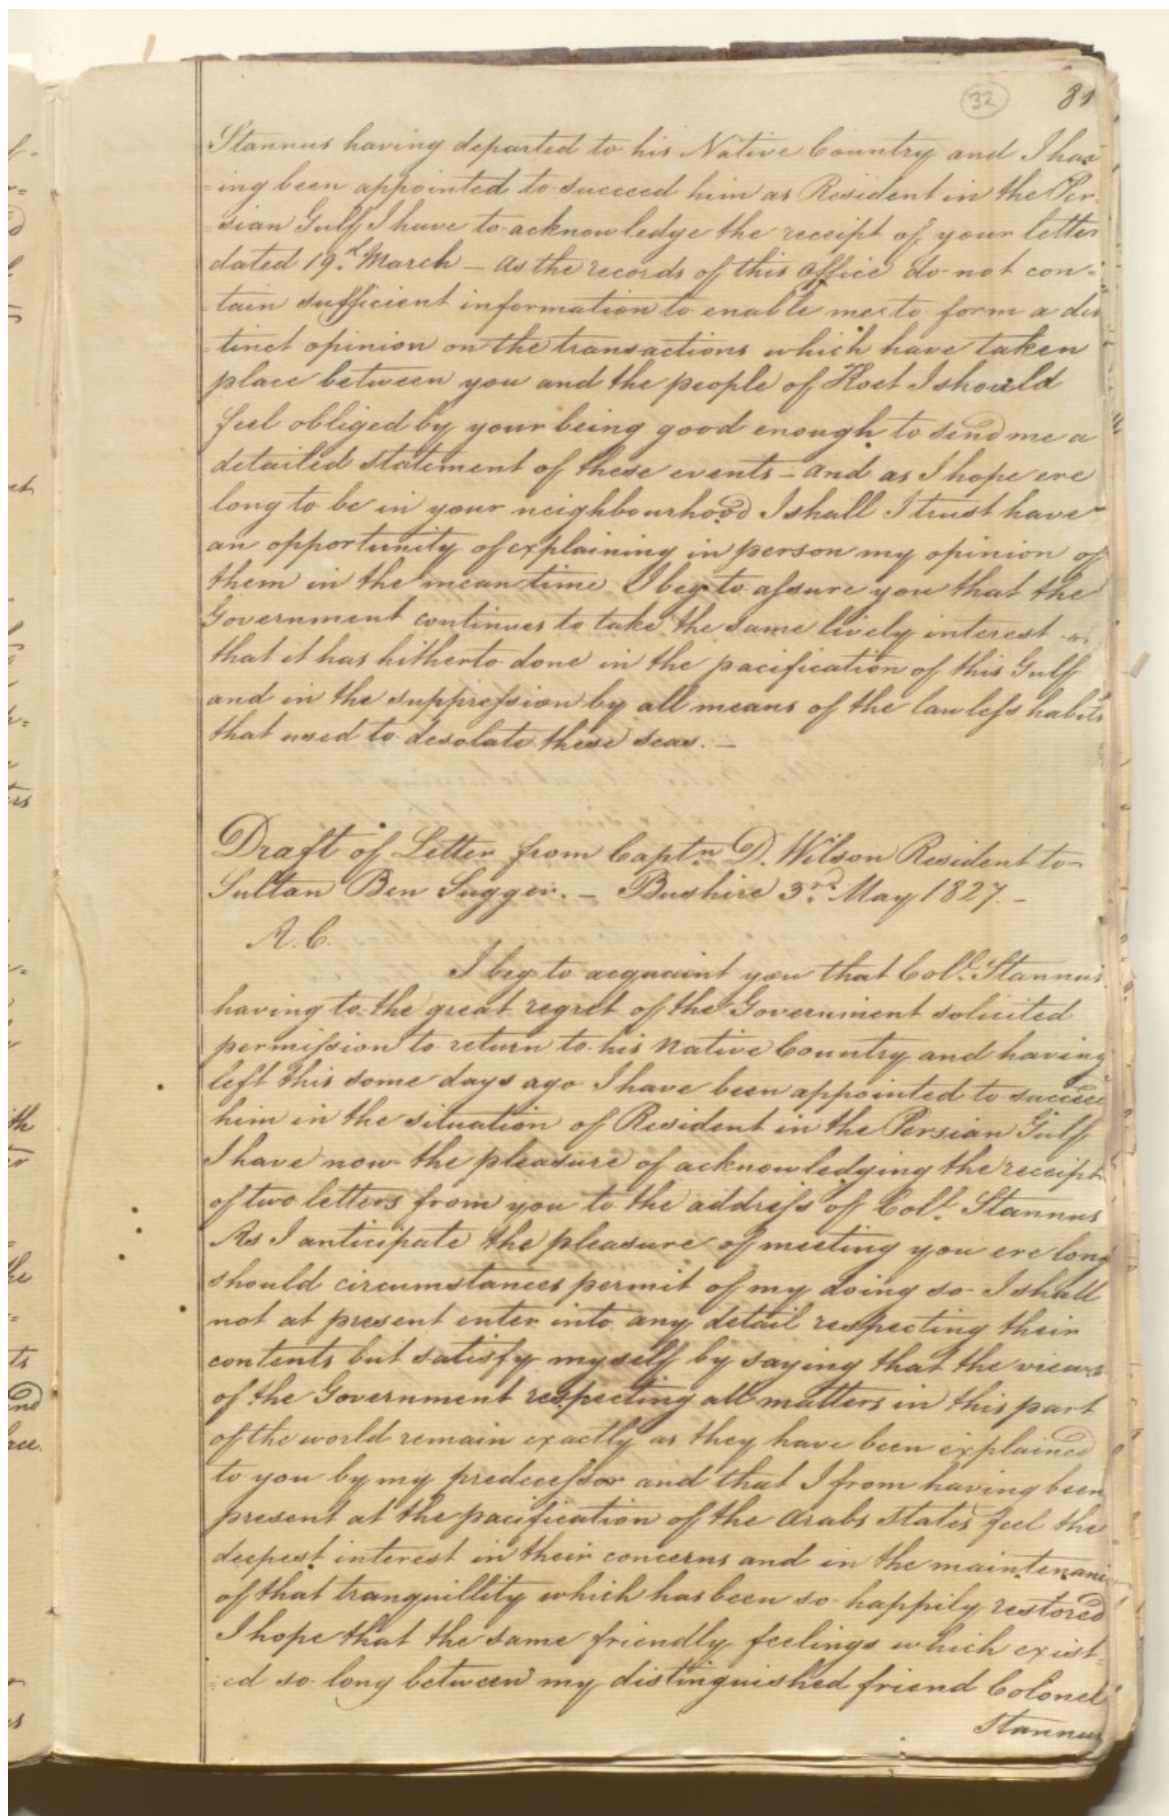 32
81
Stannus having departed to his Native Country and I hav
=ing been appointed to succeed him as Resident in the Per=
=sian Gulf I have to acknowledge the receipt of your letter
dated 19th March – As the records of this Office do not con=
=tain sufficient information to enable me to form a dis
=tinct opinion on the transactions which have taken
place between you and the people of Host I should
feel obliged by your being good enough to send me a
detailed statement of these events – and as I hope ere
long to be in your neighbourhood I shall I trust have
an opportunity of explaining in person my opinion of
them in the mean time I beg to assure you that the
Government continues to take the same lively interest
that it has hitherto done in the pacification of this Gulf
and in the suppression by all means of the lawless habits
that used to desolate these seas. –
Draft of Letter from Captn D. Wilson Resident to
Sultan Ben Suggur. – Bushire 3rd May 1827. –
A.C.
I beg to acquaint you that Coll. Stannus
having to the great regret of the Government solicited
permission to return to his Native Country and having
left this some days ago I have been appointed to succeed
him in the situation of Resident in the Persian Gulf
I have now the pleasure of acknowledging the receipt
of two letters from you to the address of Coll. Stannus
As I anticipate the pleasure of meeting you ere long
should circumstances permit of my doing so I shall
not at present enter into any detail respecting their
contents but satisfy myself by saying that the views
of the Government respecting all matters in this part
of the world remain exactly as they have been explained
to you by my predecessor and that I from having been
present at the pacification of the Arabs States feel the
deepest interest in their concerns and in the maintenanc
of that tranquillity which has been so happily restored
I hope that the same friendly feelings which exist=
=ed so long between my distinguished friend Colonel
Stannus